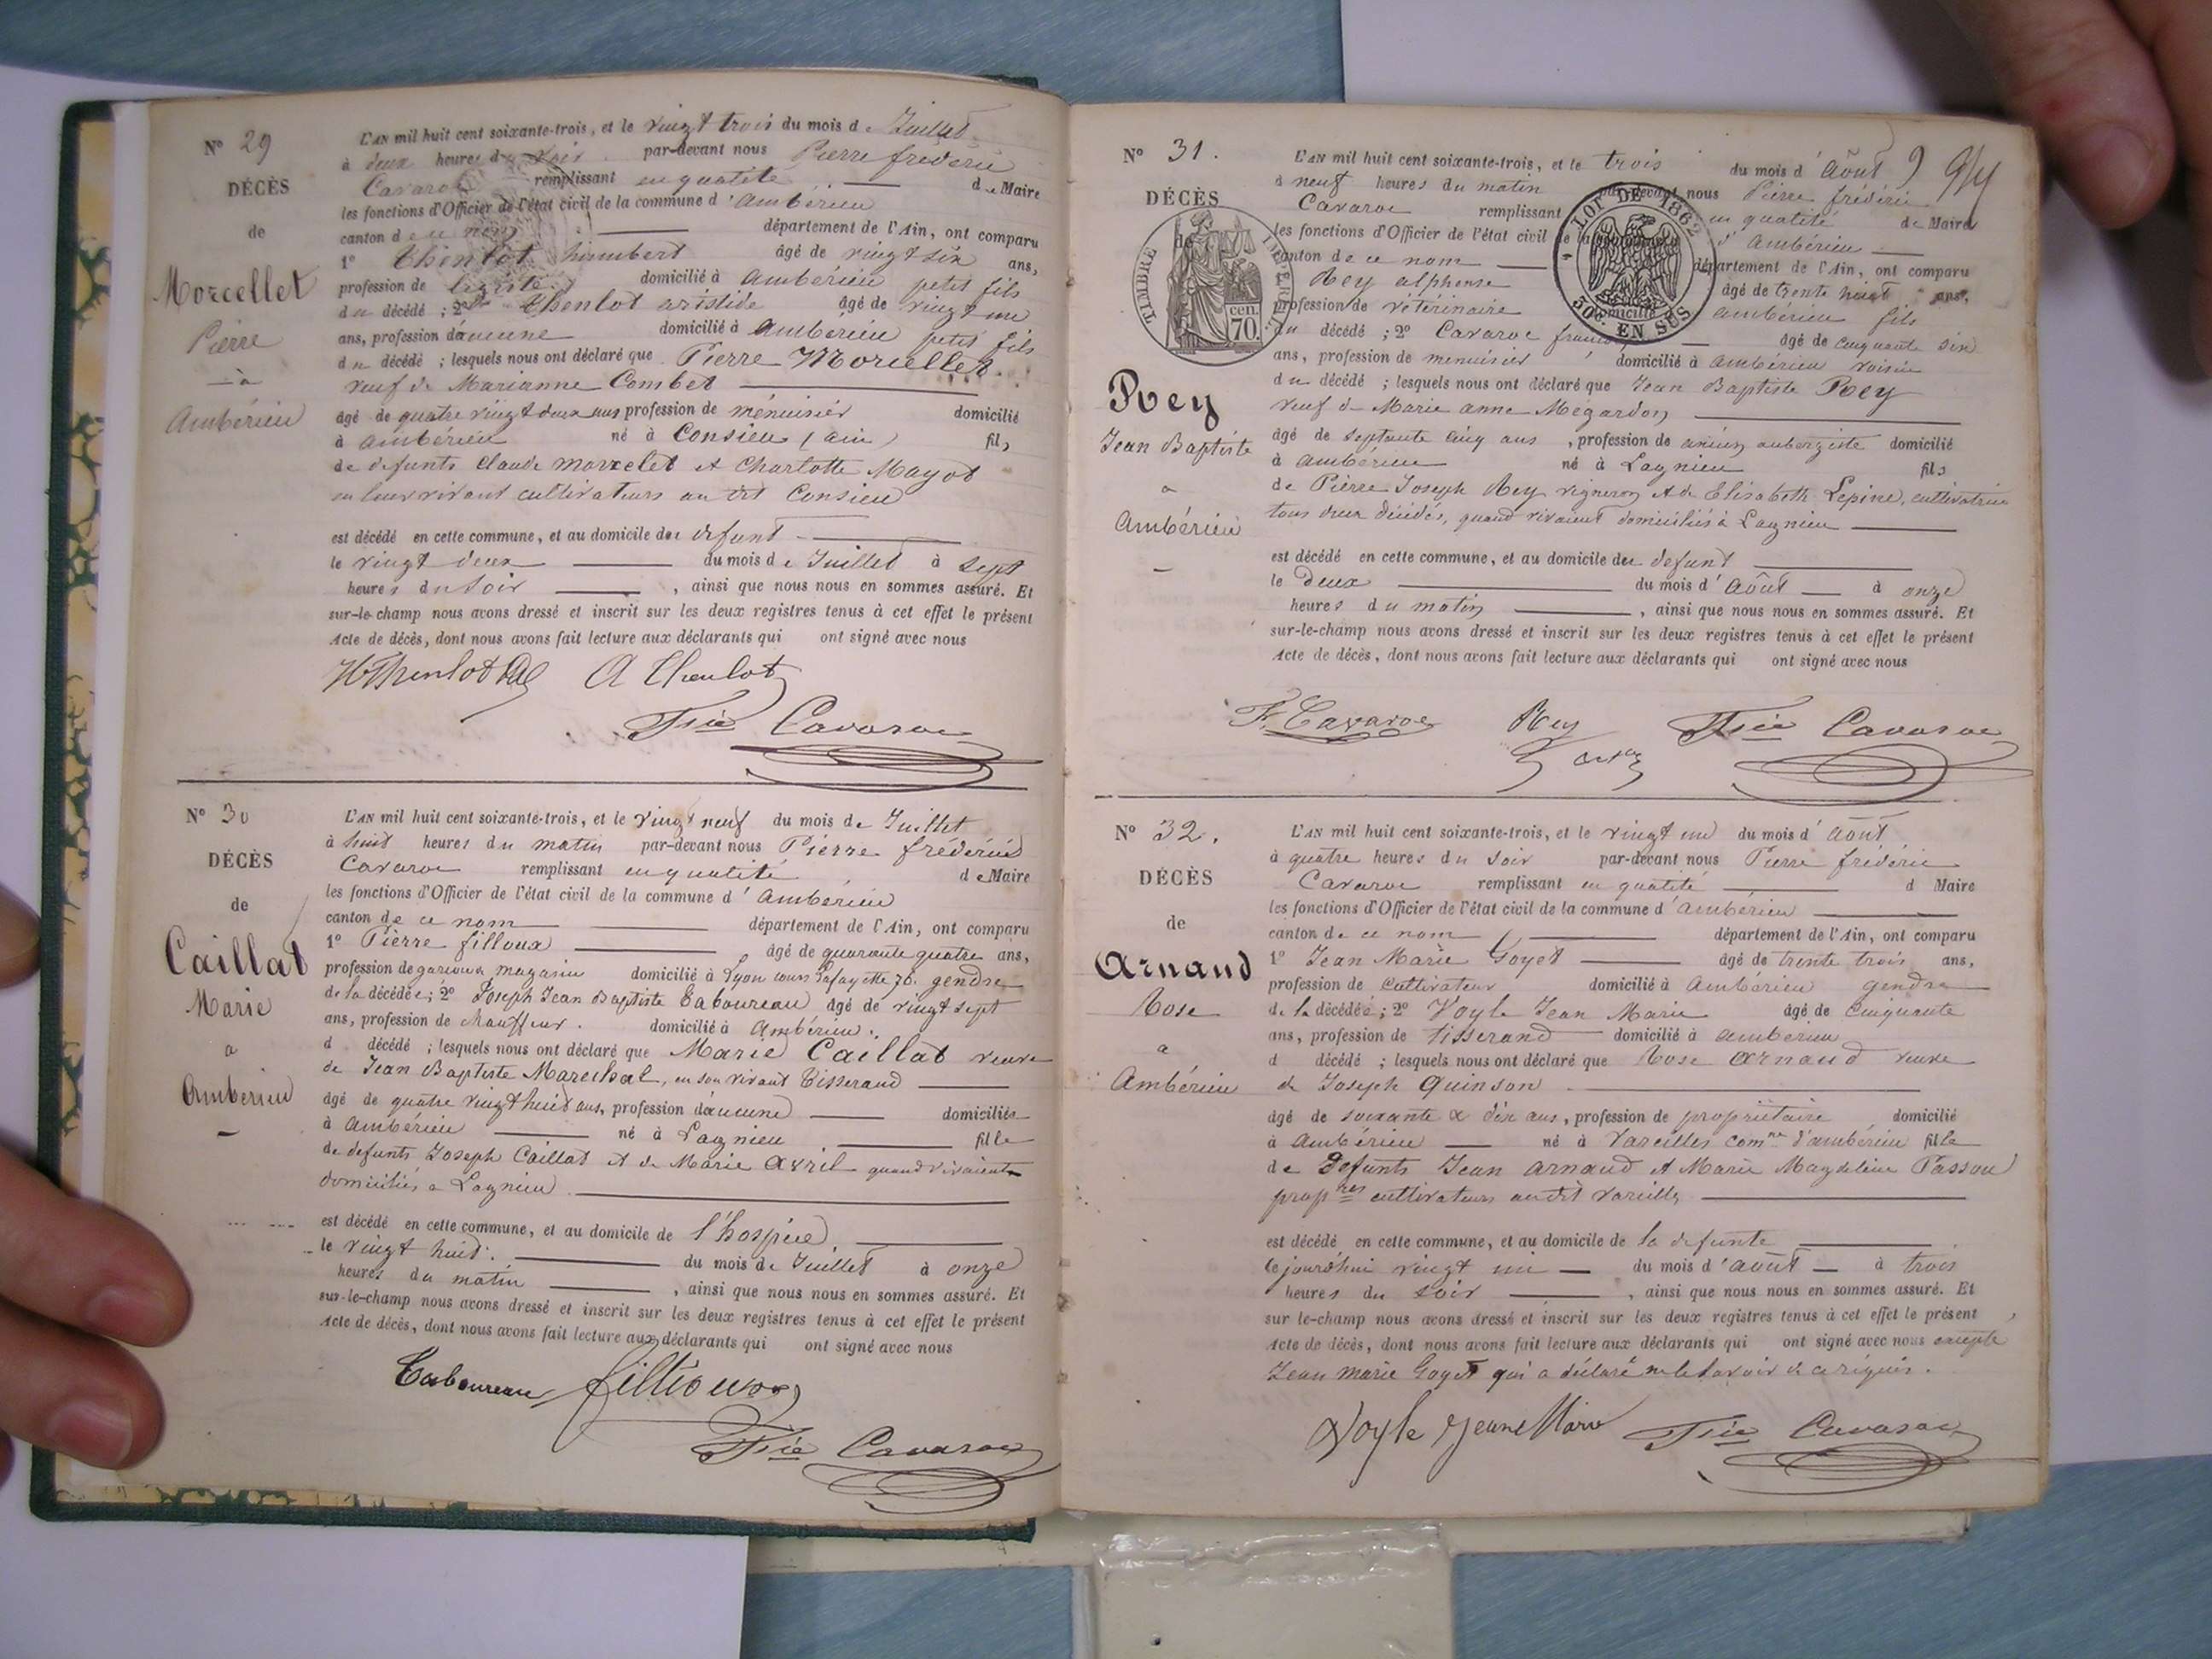 N° 29
DÉCÈS
de
Morcellet
Pierre
à
Ambérieu
L'AN mil huit cent soixante-trois, et le vingt trois du mois de Juillet
à deux heures du soir par-devant nous Pierre frédéric
Cavaroc remplissant en qualité de Maire
les fonctions d'Officier de l'état civil de la commune d'ambérieu
canton de ce nom département de l'Ain, ont comparu
1° Chenlot humbert âgé de vingt six ans,
profession de domicilié à ambérieu petit fils
du décédé ; 2° Chenlot aristide âgé de vingt un
ans, profession d'aucune domicilié à ambérieu petit fils
du décédé ; lesquels nous ont déclaré que Pierre Morcellet
veuf de Marianne Combet
âgé de quatre vingt deux ans profession de menuisier domicilié
à ambérieu né à Consieu (ain) fils
de defunts Claude morcelet et Charlotte Mayot
en leur vivant cultivateurs au dit Consieu
est décédé en cette commune, et au domicile du defunt
le vingt deux du mois de Juillet à sept
heures du soir , ainsi que nous nous en sommes assuré. Et
sur-le-champ nous avons dressé et inscrit sur les deux registres tenus à cet effet le présent
Acte de décès, dont nous avons fait lecture aux déclarants qui ont signé avec nous
A Chenlot
Cavaroc
N° 30
DÉCÈS
de
Caillat
Marie
a
Amberieu
L'AN mil huit cent soixante-trois, et le vingt neuf du mois de Juillet
à huit heures du matin par-devant nous Pierre frédéric
Cavaroc remplissant en qualité de Maire
les fonctions d'Officier de l'état civil de la commune d'ambérieu
canton de ce nom département de l'Ain, ont comparu
1° Pierre filloux âgé de quarante quatre ans,
profession de garçon de magasin domicilié à Lyon cours Lafayette 70. gendre
de la décédée ; 2° Joseph Jean Baptiste Taboureau âgé de vingt sept
ans, profession de chauffeur. domicilié à Ambérieu.
d décédé ; lesquels nous ont déclaré que Marie Caillat veuve
de Jean Baptiste Marechal, en son vivant tisserand
âgé de quatre vingt huit ans, profession d'aucune domiciliée
à Ambérieu né à Lagnieu fille
de defunts Joseph Caillat et de Marie avril quand vivaient
domiciliés a Lagnieu
est décédé en cette commune, et au domicile de l'hospice
le vingt huit. du mois de Juillet à onze
heures du matin , ainsi que nous nous en sommes assuré. Et
sur-le-champ nous avons dressé et inscrit sur les deux registres tenus à cet effet le présent
Acte de décès, dont nous avons fait lecture aux déclarants qui ont signé avec nous
Taboureau fillioux
Cavaroc
N° 31.
DÉCÈS
de
TIMBRE IMPERIAL
70. cen.
Rey
Jean Baptiste
a
Ambérieu
LOI DE 1862
50c. EN SUS
L'AN mil huit cent soixante-trois, et le trois du mois d'août
à neuf heures du matin par-devant nous Pierre frédéric
Cavaroc remplissant en qualité de Maire
les fonctions d'Officier de l'état civil de la commune d'ambérieu
canton de ce nom département de l'Ain, ont comparu
Rey alphonse âgé de trente huit ans,
profession de vétérinaire domicilié ambérieu fils
du décédé ; 2° Cavaroc âgé de cinquante six
ans, profession de menuisier domicilié à ambérieu voisin
du décédé ; lesquels nous ont déclaré que Jean Baptiste Rey
veuf de Marie anne Megardon
âgé de septante cinq ans , profession de ancien aubergiste domicilié
à ambérieu né à Lagnieu fils
de Pierre Joseph Rey vigneron et de Elisabeth Lepine, cultivatrice
tous deux décédés, quand vivaient domiciliés à Lagnieu
est décédé en cette commune, et au domicile du defunt
le deux du mois d'août à onze
heures du matin , ainsi que nous nous en sommes assuré. Et
sur-le-champ nous avons dressé et inscrit sur les deux registres tenus à cet effet le présent
Acte de décès, dont nous avons fait lecture aux déclarants qui ont signé avec nous
F. Cavaroc Rey Cavaroc
N° 32.
DÉCÈS
de
Arnaud
Rose
a
Ambérieu
L'AN mil huit cent soixante-trois, et le vingt un du mois d'août
à quatre heures du soir par-devant nous Pierre frédéric
Cavaroc remplissant en qualité d Maire
les fonctions d'Officier de l'état civil de la commune d'ambérieu
canton de ce nom département de l'Ain, ont comparu
1° Jean Marie Goyet âgé de trente trois ans,
profession de cultivateur domicilié à ambérieu gendre
de la décédée ; 2° Voyle Jean Marie âgé de cinquante
ans, profession de tisserand domicilié à ambérieu
d décédé ; lesquels nous ont déclaré que Rose arnaud veuve
de Joseph Quinson
âgé de soixante & dix ans, profession de propriétaire domicilié
à ambérieu né à Vareilles comne d'ambérieu fille
de defunts Jean arnaud et Marie Magdeleine Passou
propres cultivateurs audit Vareilles
est décédé en cette commune, et au domicile de la defunte
ce jourd'hui vingt un du mois d'août à trois
heures du soir , ainsi que nous nous en sommes assuré. Et
sur le-champ nous avons dressé et inscrit sur les deux registres tenus à cet effet le présent
Acte de décès, dont nous avons fait lecture aux déclarants qui ont signé avec nous excepté
Jean Marie Goyet qui a déclaré ne le savoir de ce requis.
Voyle Cavaroc